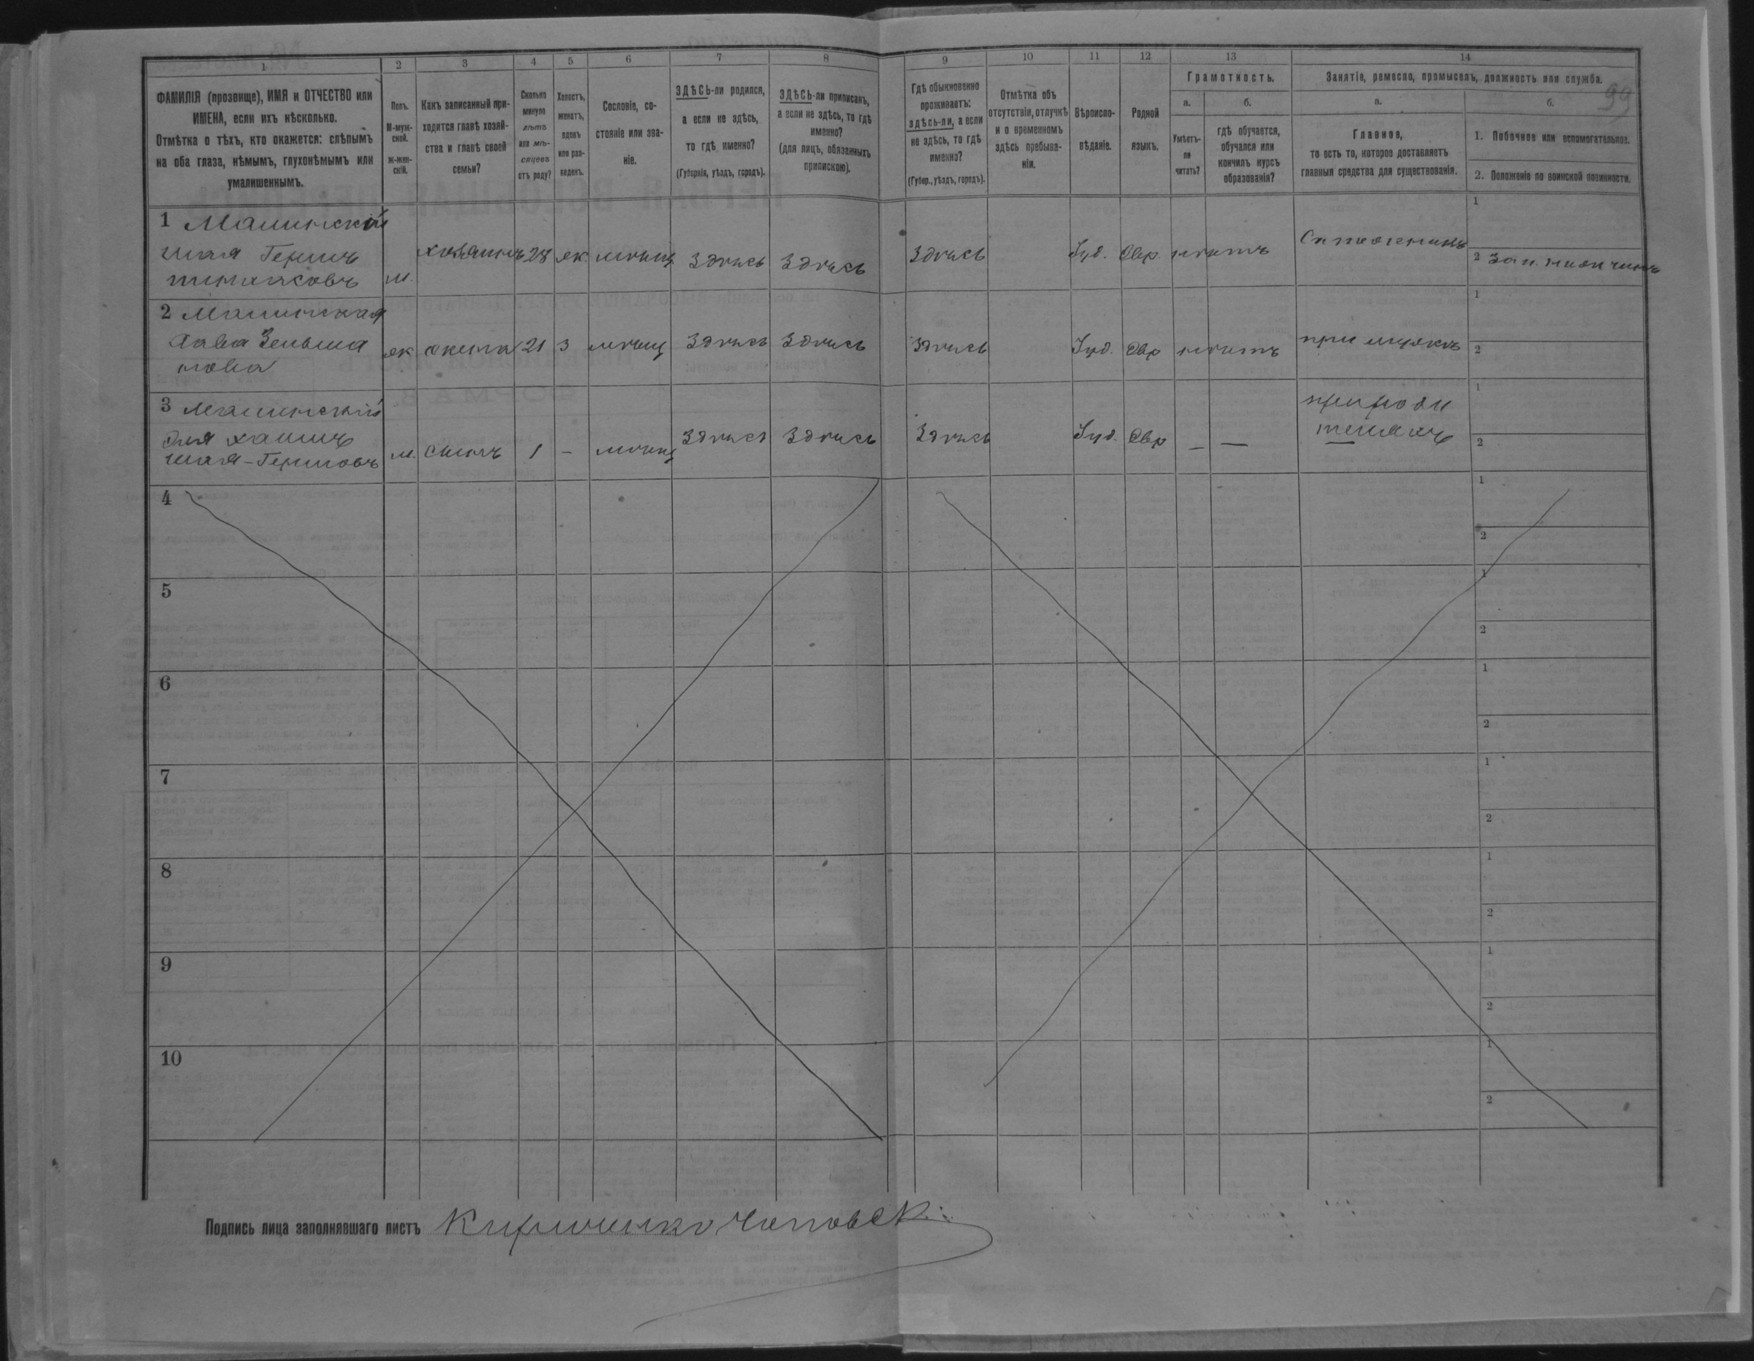 1 2 3 4 5 6 7 8 9 10 11 12 13 14
ФАМИЛІЯ (прозвище), ИМЯ и ОТЧЕСТВО или
ИМЕНА, если ихъ нѣсколько.
Отмѣтка о тѣхъ, кто окажется: слѣпымъ
на оба глаза, нѣмымъ, глухонѣмымъ или
умалишеннымъ.
Полъ.
М-муж-
ской.
ж-жен-
скій.
Какъ записанный при-
ходится главѣ хозяй-
ства и главѣ своей
семьи?
Сколько
минуло
лѣтъ
или мѣ-
сяцевъ
отъ роду?
Холостъ,
женатъ,
вдовъ
или раз-
веденъ.
Сословіе, со-
стояніе или зва-
ніе.
ЗДѢСЬ-ли родился,
а если не здѣсь,
то гдѣ именно?
(Губернія, уѣздъ, городъ).
ЗДѢСЬ-ли приписанъ,
а если не здѣсь, то гдѣ
именно?
(для лицъ, обязанныхъ
припискою).
Гдѣ обыкновенно
проживаетъ:
здѣсь-ли, а если
не здѣсь, то гдѣ
именно?
(Губер., уѣздъ, городъ).
Отмѣтка объ
отсутствіи, отлучкѣ
и о временномъ
здѣсь пребыва-
ніи.
Вѣроиспо-
вѣданіе.
Родной
языкъ.
Грамотность.
а.
Умѣетъ-
ли
читать?
б.
гдѣ обучается,
обучался или
кончилъ курсъ
образованія?
Занятіе, ремесло, промыселъ, должность или служба.
99
а.
Главное,
то есть то, которое доставляетъ
главныя средства для существованія.
б.
1. Побочное или вспомогательное.
2. Положеніе по воинской повинности.
1 Малинскій
м. хозяинъ 28 ж мѣщ здѣсь здѣсь здѣсь Іуд. Евр нѣтъ
1
2
2 Малинская
Хава
жк жена 21 з мѣщ здѣсь здѣсь здѣсь Іуд. Евр нѣтъ при мужѣ
1
2
3 Малинскій
м. сынъ 1 – мѣщ здѣсь здѣсь здѣсь Іуд. Евр – – при роди
теляхъ
1
2
4 1
2
5 1
2
6 1
2
7 1
2
8 1
2
9 1
2
10 1
2
Подпись лица заполнявшаго листъ